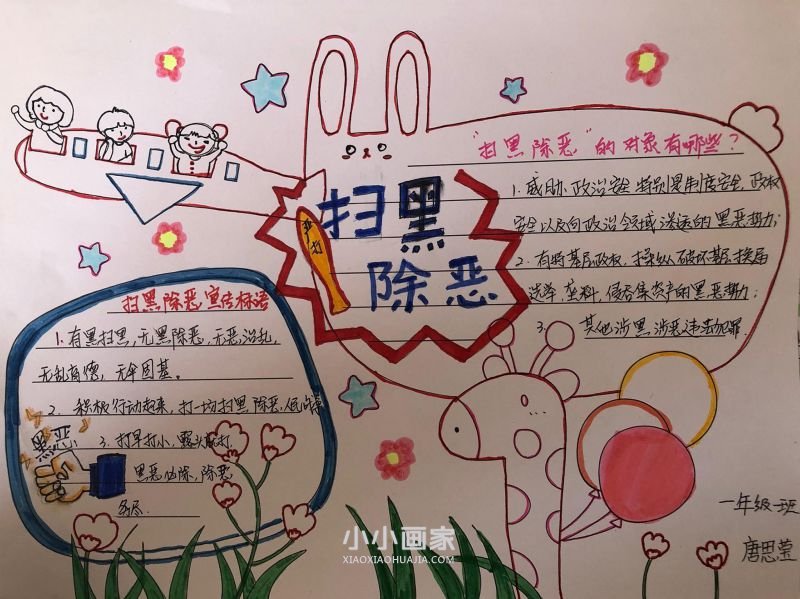 扫黑除恶
严打
"扫黑除恶"的对象有哪些?
1. 威胁政治安全 特别是制度安全,政权
安全以及向政治领域渗透的黑恶势力;
2. 把持基层政权,操纵破坏基层换届
选举,垄断,侵吞集资产的黑恶势力;
3. 其他涉黑,涉恶违法犯罪.
扫黑除恶宣传标语
1. 有黑扫黑,无黑除恶,无恶治乱,
无乱
2. 积极行动起来,打一场扫黑除恶
3. 打早打小,露头就打.
黑恶必除,除恶
务尽.
黑恶
一年级一班
唐思莹
小小画家
XIAOXIAOHUAJIA.COM